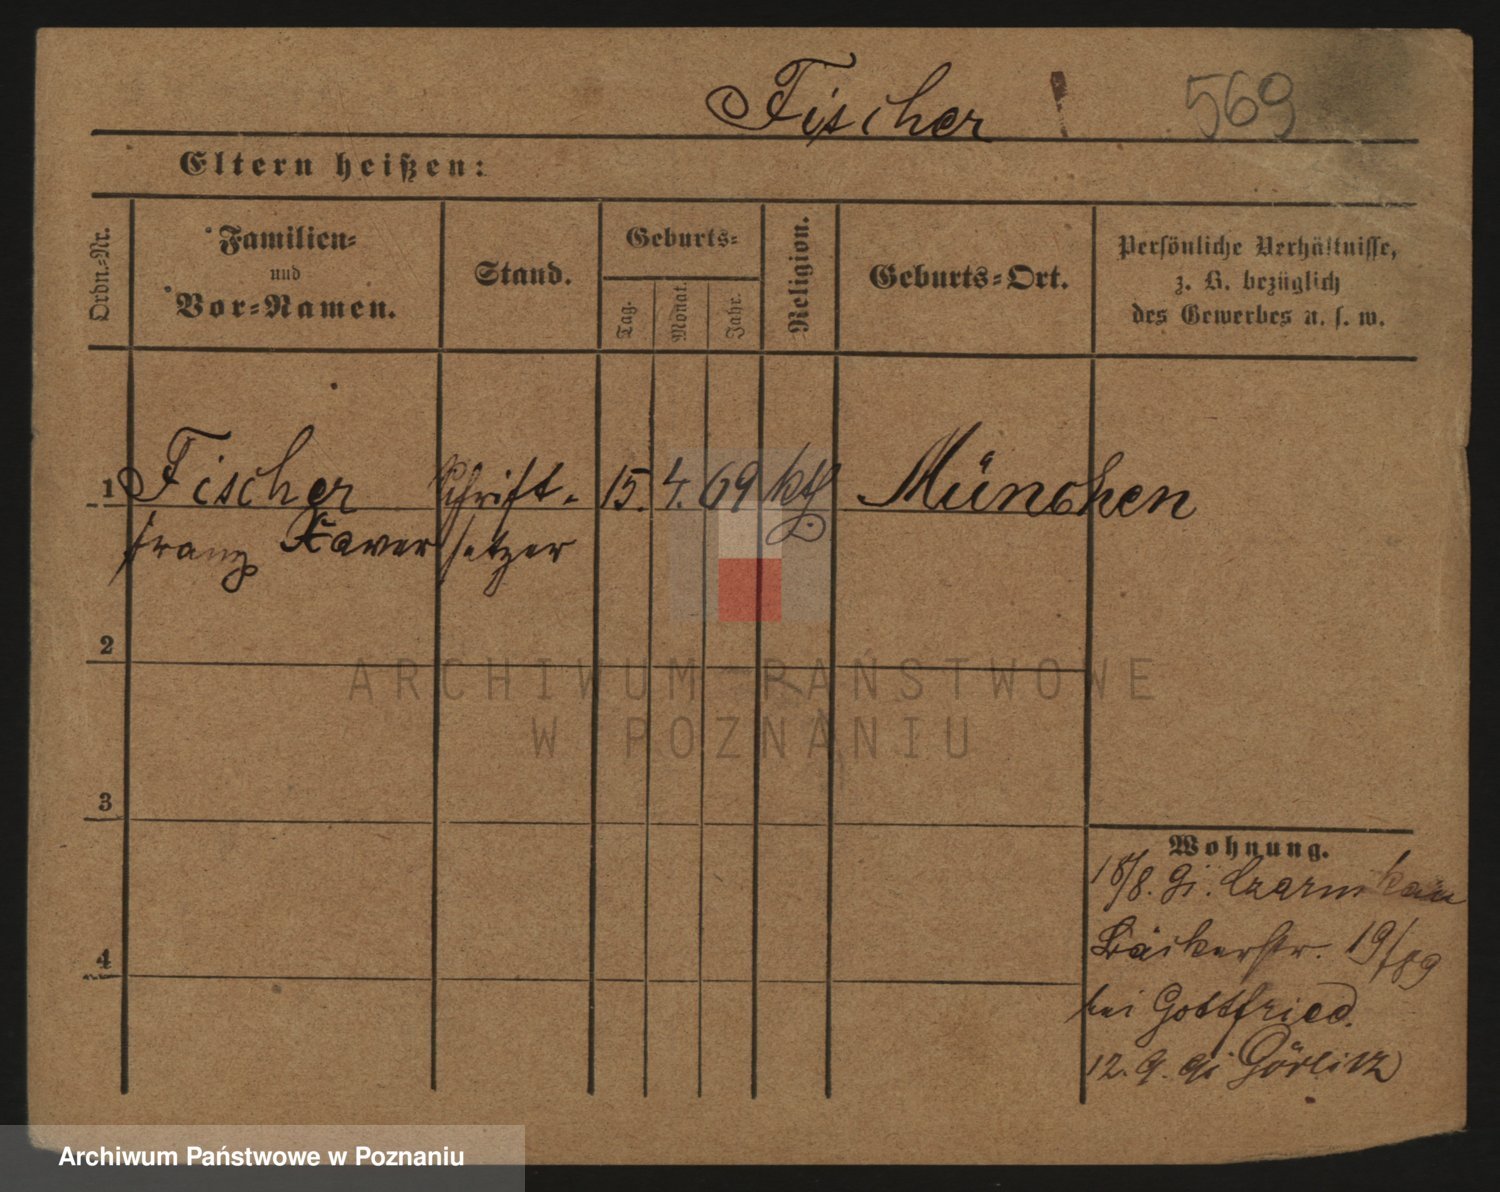 Fischer 569
Eltern heißen:
Ordn.-Nr.
Familien-
und
Vor-Namen.
Stand.
Geburts-
Tag.
Monat.
Jahr.
Religion.
Geburts-Ort.
Persönliche Verhältnisse,
z. B. bezüglich
des Gewerbes u. s. w.
1 Fischer Schrift- 15. 4. 69 kth München
Franz Xaver setzer
2
3
4
Wohnung.
18/8. Czarnikau
Bäckerstr. 19/89
bei Gottfried.
12. 9. Görlitz
ARCHIWUM PAŃSTWOWE
W POZNANIU
Archiwum Państwowe w Poznaniu